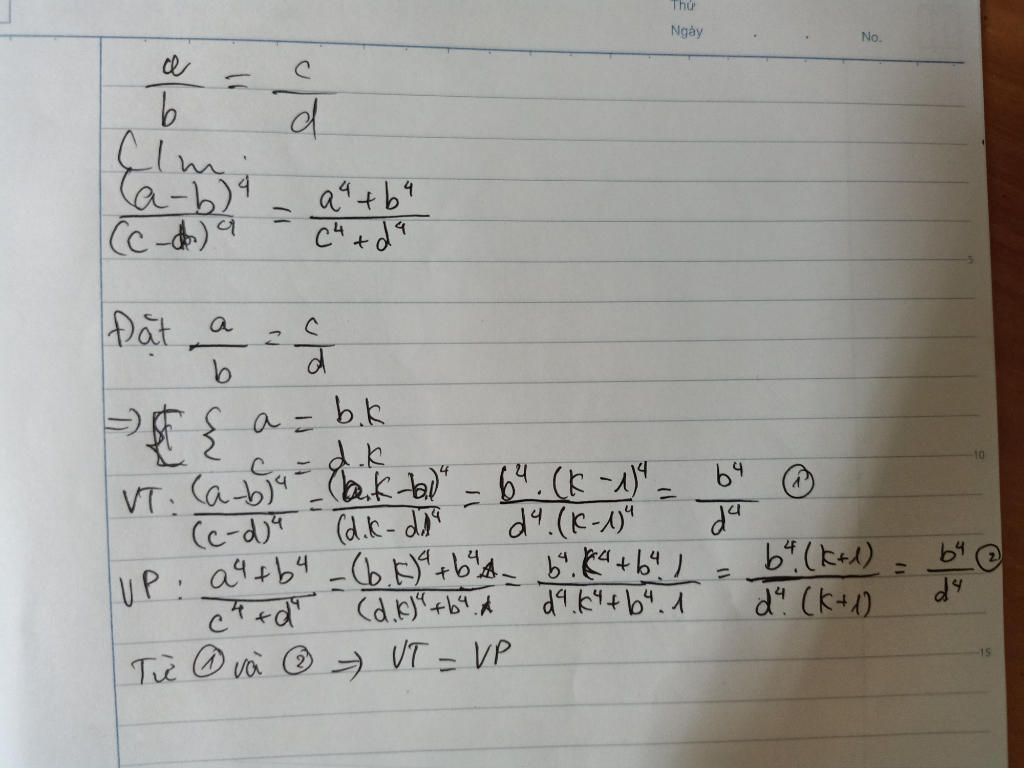 Thứ
Ngày . . No.
a/b = c/d
C/m:
(a-b)⁴/(c-d)⁴ = a⁴+b⁴/c⁴+d⁴
5
Đặt a/b = c/d
=> { a = b.k
c = d.k
10
VT: (a-b)⁴/(c-d)⁴ = (b.k-b.1)⁴/(d.k-d.1)⁴ = b⁴.(k-1)⁴/d⁴.(k-1)⁴ = b⁴/d⁴ ①
VP: a⁴+b⁴/c⁴+d⁴ = (b.k)⁴+b⁴.1/(d.k)⁴+b⁴.1 = b⁴.k⁴+b⁴.1/d⁴.k⁴+b⁴.1 = b⁴.(k+1)/d⁴.(k+1) = b⁴/d⁴ ②
Từ ① và ② => VT = VP
15